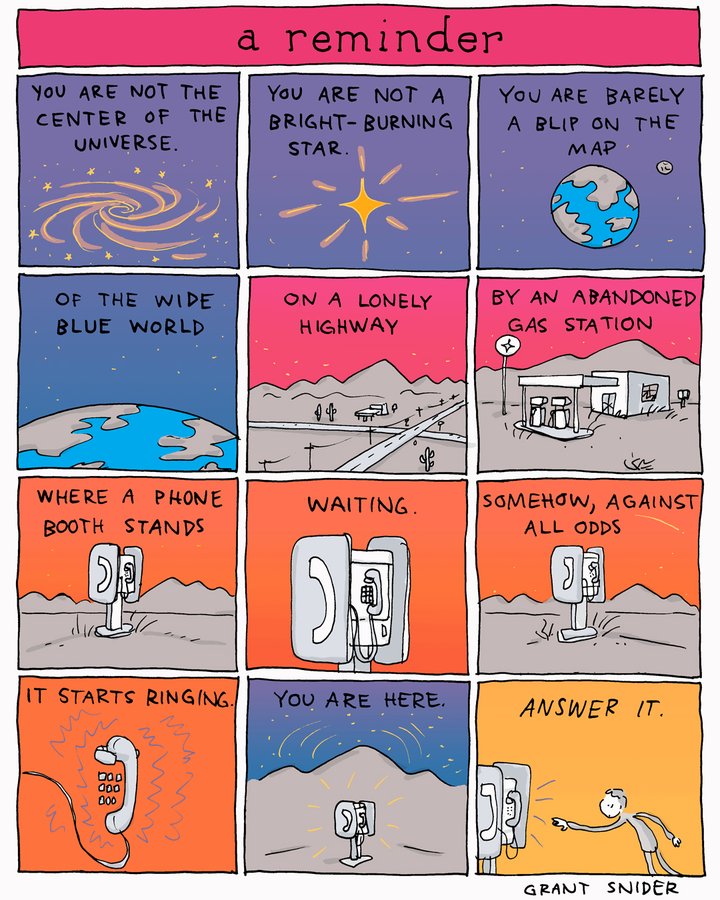 a reminder
YOU ARE NOT THE
CENTER OF THE
UNIVERSE.
YOU ARE NOT A
BRIGHT-BURNING
STAR.
YOU ARE BARELY
A BLIP ON THE
MAP
OF THE WIDE
BLUE WORLD
ON A LONELY
HIGHWAY
BY AN ABANDONED
GAS STATION
WHERE A PHONE
BOOTH STANDS
WAITING.
SOMEHOW, AGAINST
ALL ODDS
IT STARTS RINGING.
YOU ARE HERE.
ANSWER IT.
GRANT SNIDER